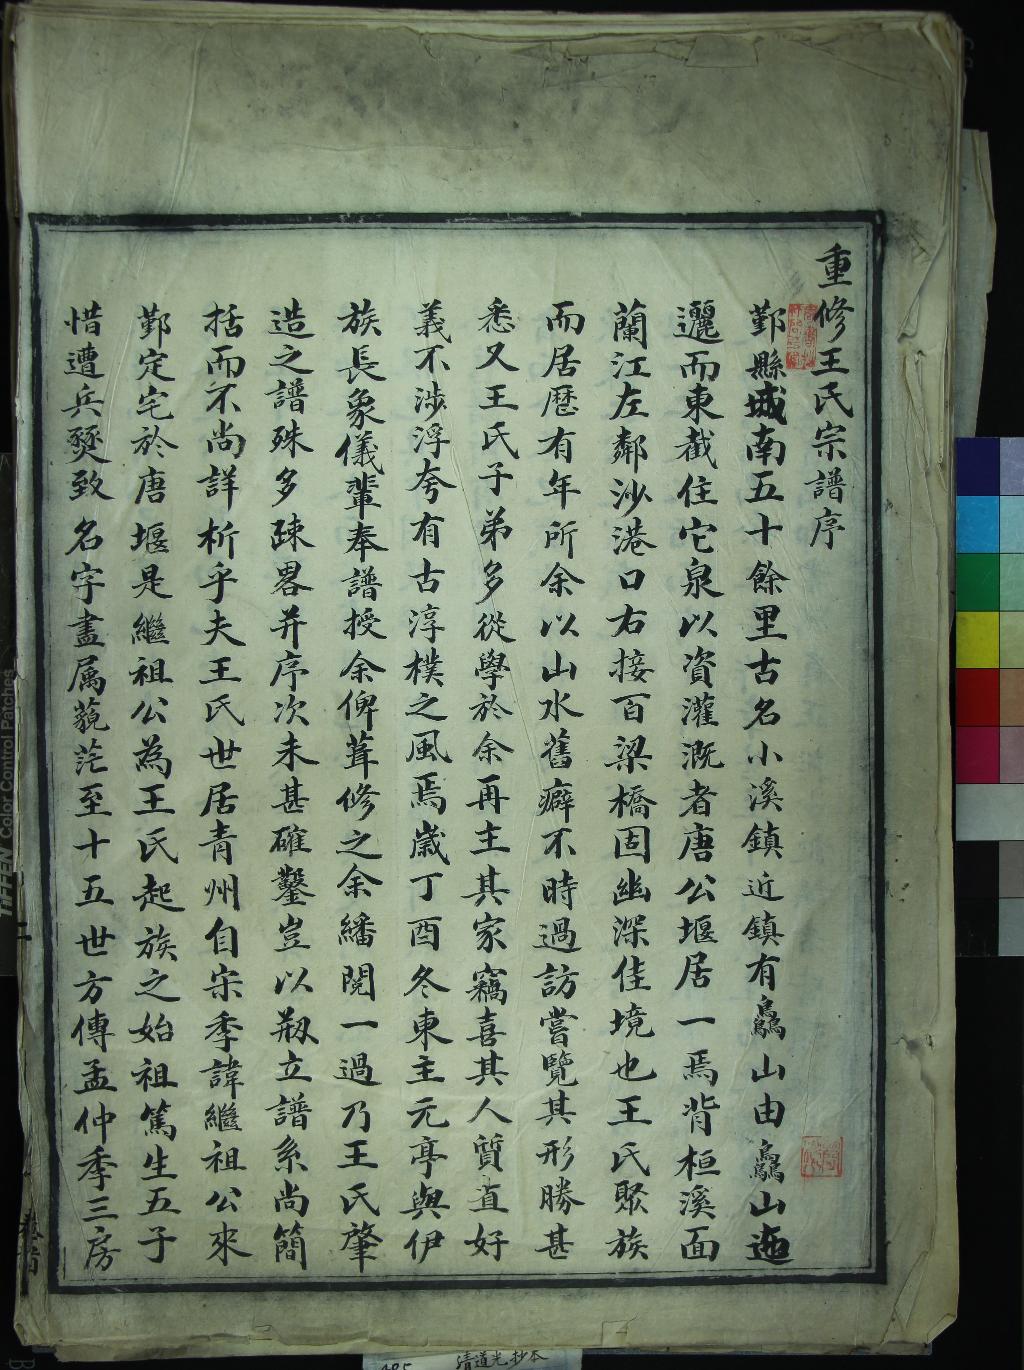 重修王氏宗譜序
鄞縣城南五十餘里古名小溪鎮近鎮有鱻山由鱻山迤
邐而東截住它泉以資灌溉者唐公堰居一焉背桓溪面
蘭江左鄰沙港口右接百梁橋固幽深佳境也王氏聚族
而居歷有年所余以山水舊癖不時過訪嘗覽其形勝甚
悉又王氏子弟多從學於余再主其家竊喜其人質直好
義不涉浮夸有古淳樸之風焉歲丁酉冬東主元亭與伊
族長象儀輩奉譜授余俾葺修之余繙閱一過乃王氏肇
造之譜殊多疎畧并序次未甚確鑿豈以刱立譜系尚簡
括而不尚詳析乎夫王氏世居青州自宋季諱繼祖公來
鄞定宅於唐堰是繼祖公為王氏起族之始祖篤生五子
惜遭兵燹致名字盡属藐茫至十五世方傳孟仲季三房
清道光抄本
TIFFEN Color Control Patches